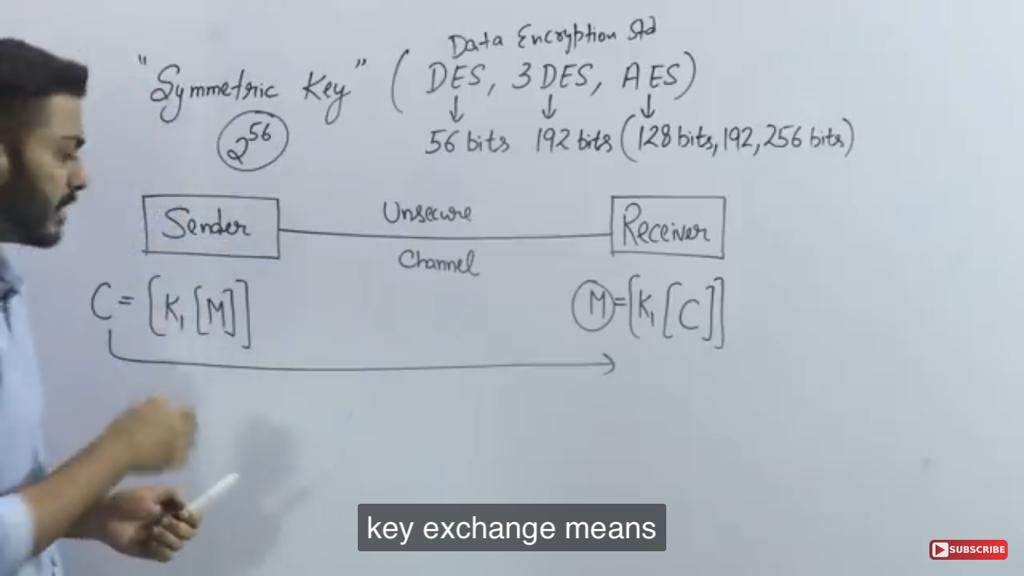 Data Encryption Std
"Symmetric Key" (DES, 3DES, AES)
2^56
56 bits 192 bits (128 bits, 192, 256 bits)
Sender
Unsecure
Channel
Receiver
C = [K, [M]]
M = [K, [C]]
key exchange means
SUBSCRIBE